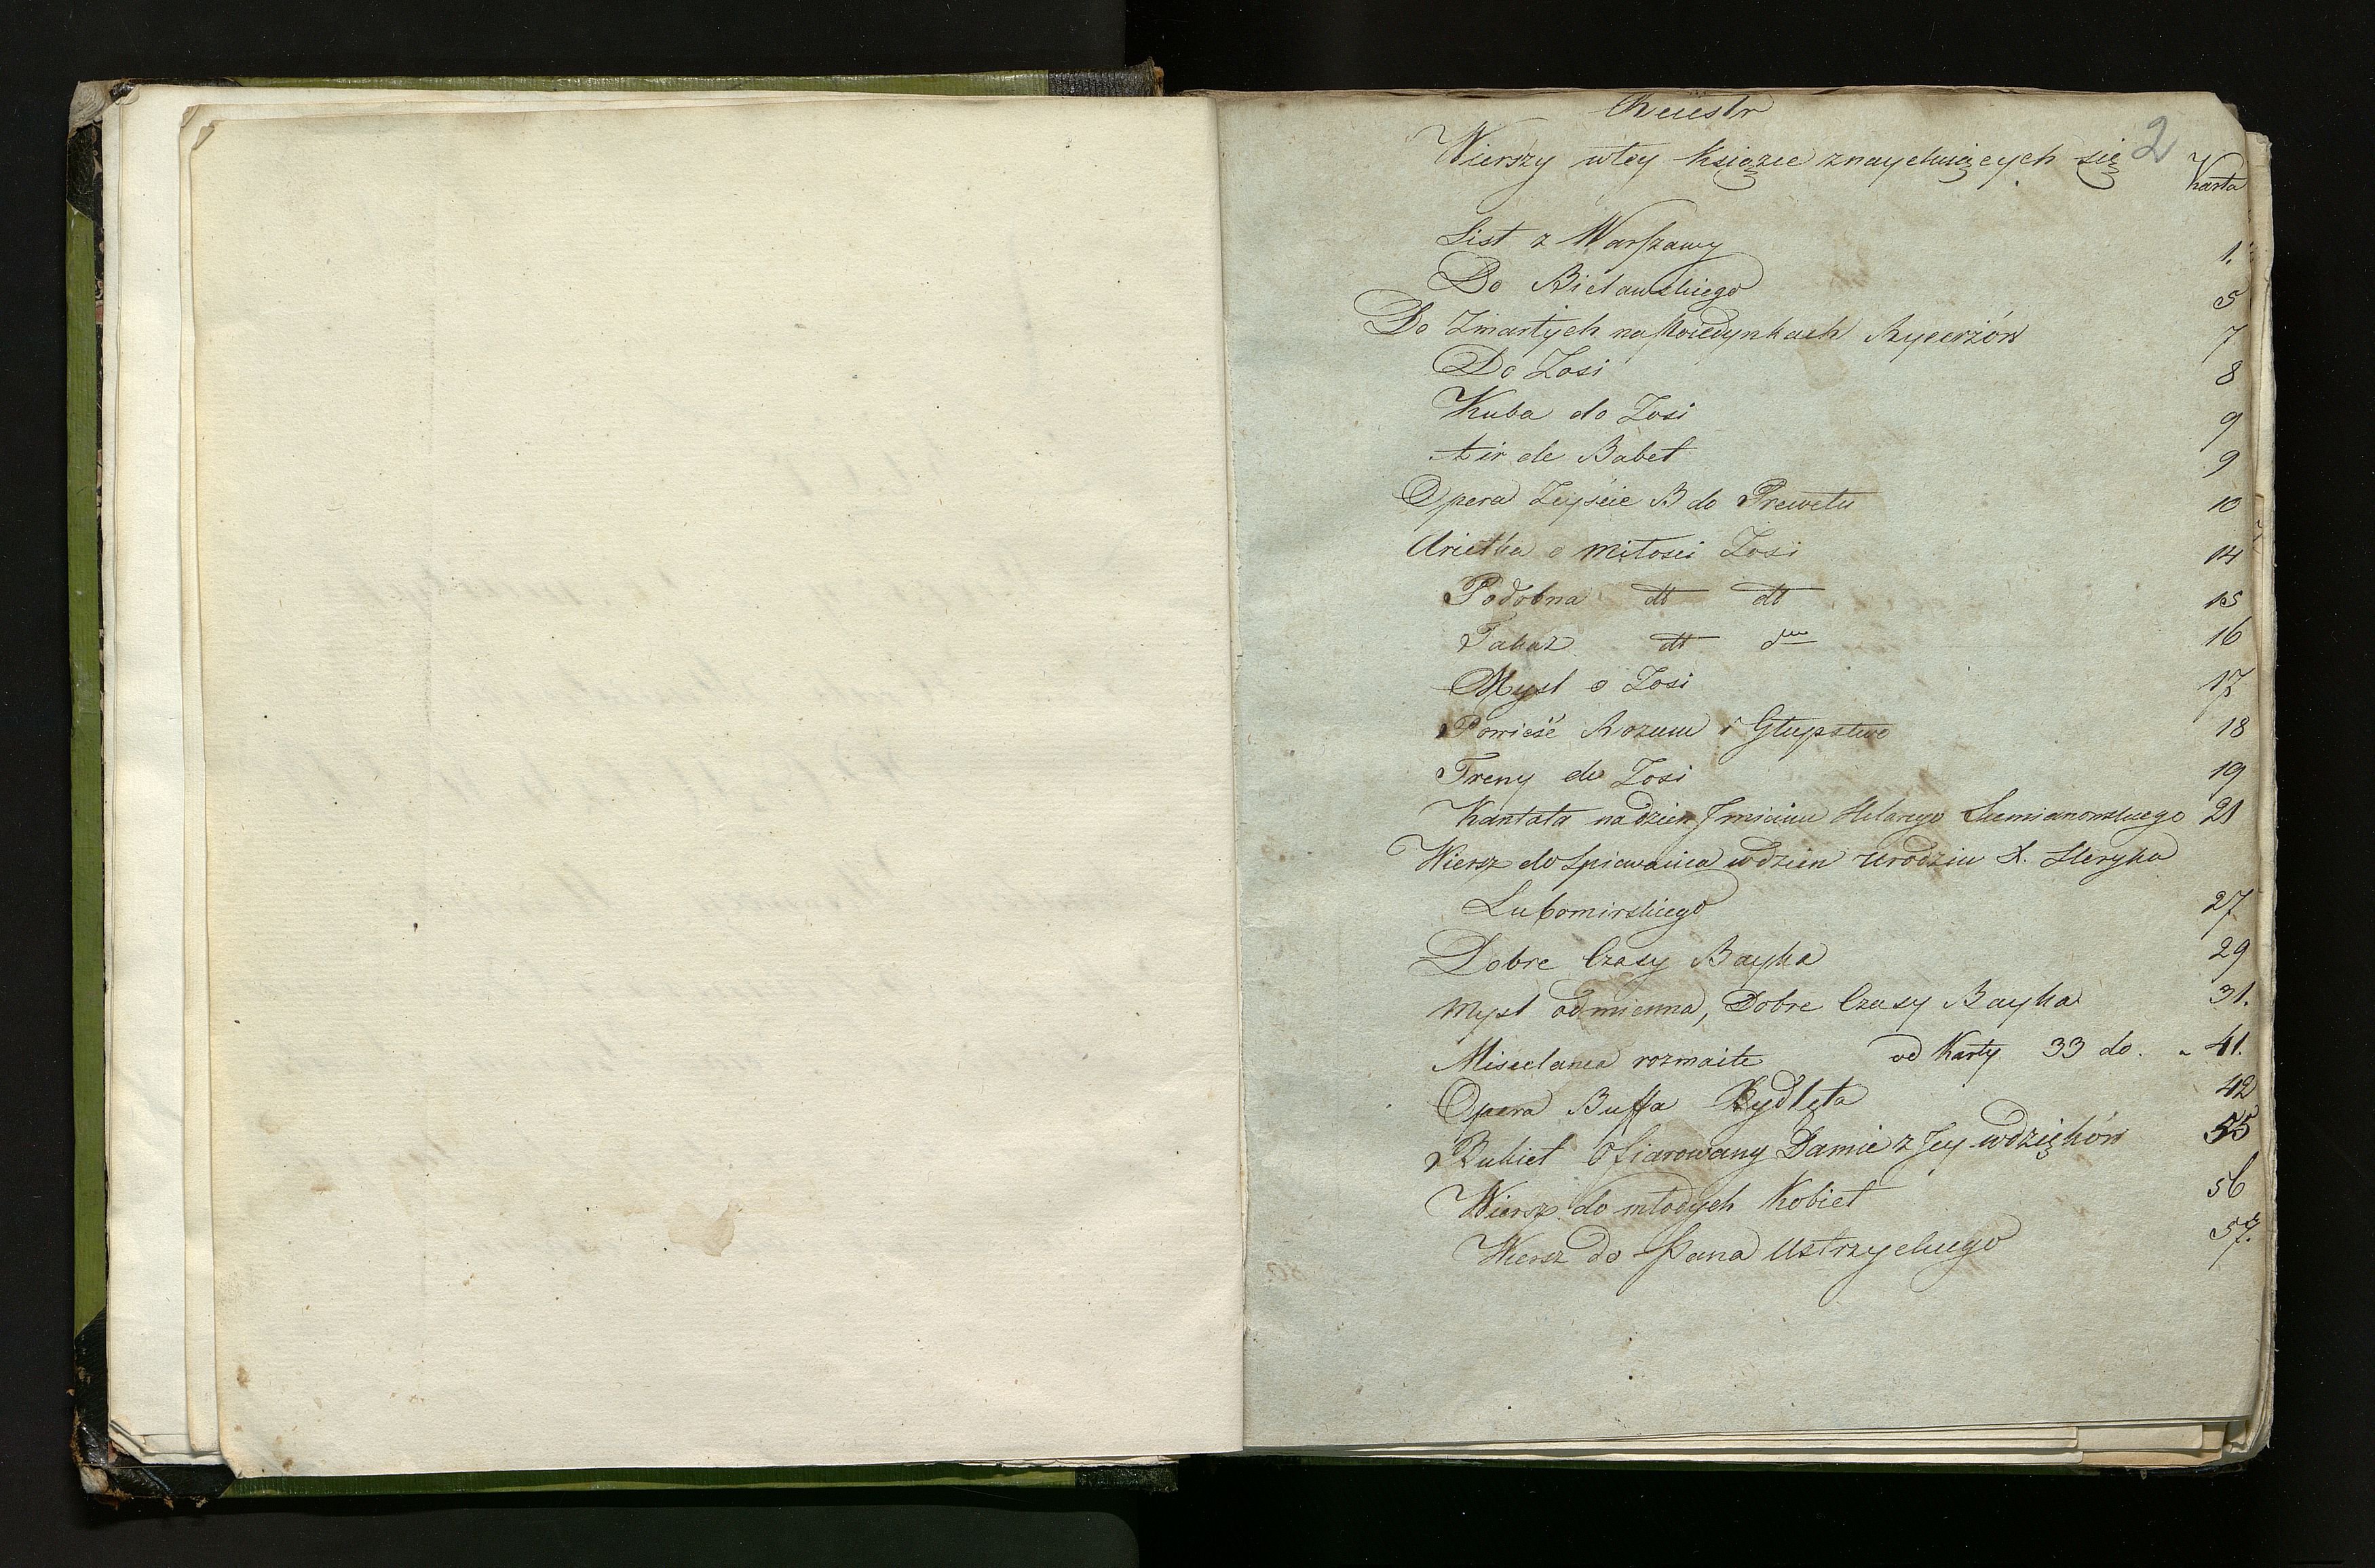 Reiestr
2
Wierszy wtey Księzce znayduiących się
Karta
List z Warszawy 1.
Do Bielawskiego 5
Do Zmarłych na Poiedynkach Rycerzów 7
Do Zosi 8
Kuba do Zosi 9
Air de Babet 9
Opera Zeyście B do Prewetu 10
Arietka o Miłosci Zosi 14
Podobna dt dt 15
Takaz dt dtto 16
Mysl o Zosi 17
Powieść Rozum i Głupstwo 18
Treny do Zosi 19
Kantata na dzien Imieniu Hilarego Siemianowskiego 21
Wiersz do Spiewania wdzien Urodzin X. Heryka
Lubomirskiego 27
Dobre Czasy Bayka 29
Mysl odmienna, Dobre Czasy Bayka 31.
Miscelanea rozmaite od Karty 33 do. 41.
Opera Buffa Bydlęta 42
Bukiet Ofiarowany Damie z Jey wdzięków 55
Wiersz do młodych Kobiet 56
Wiersz do Pana Ustrzyckiego 57.